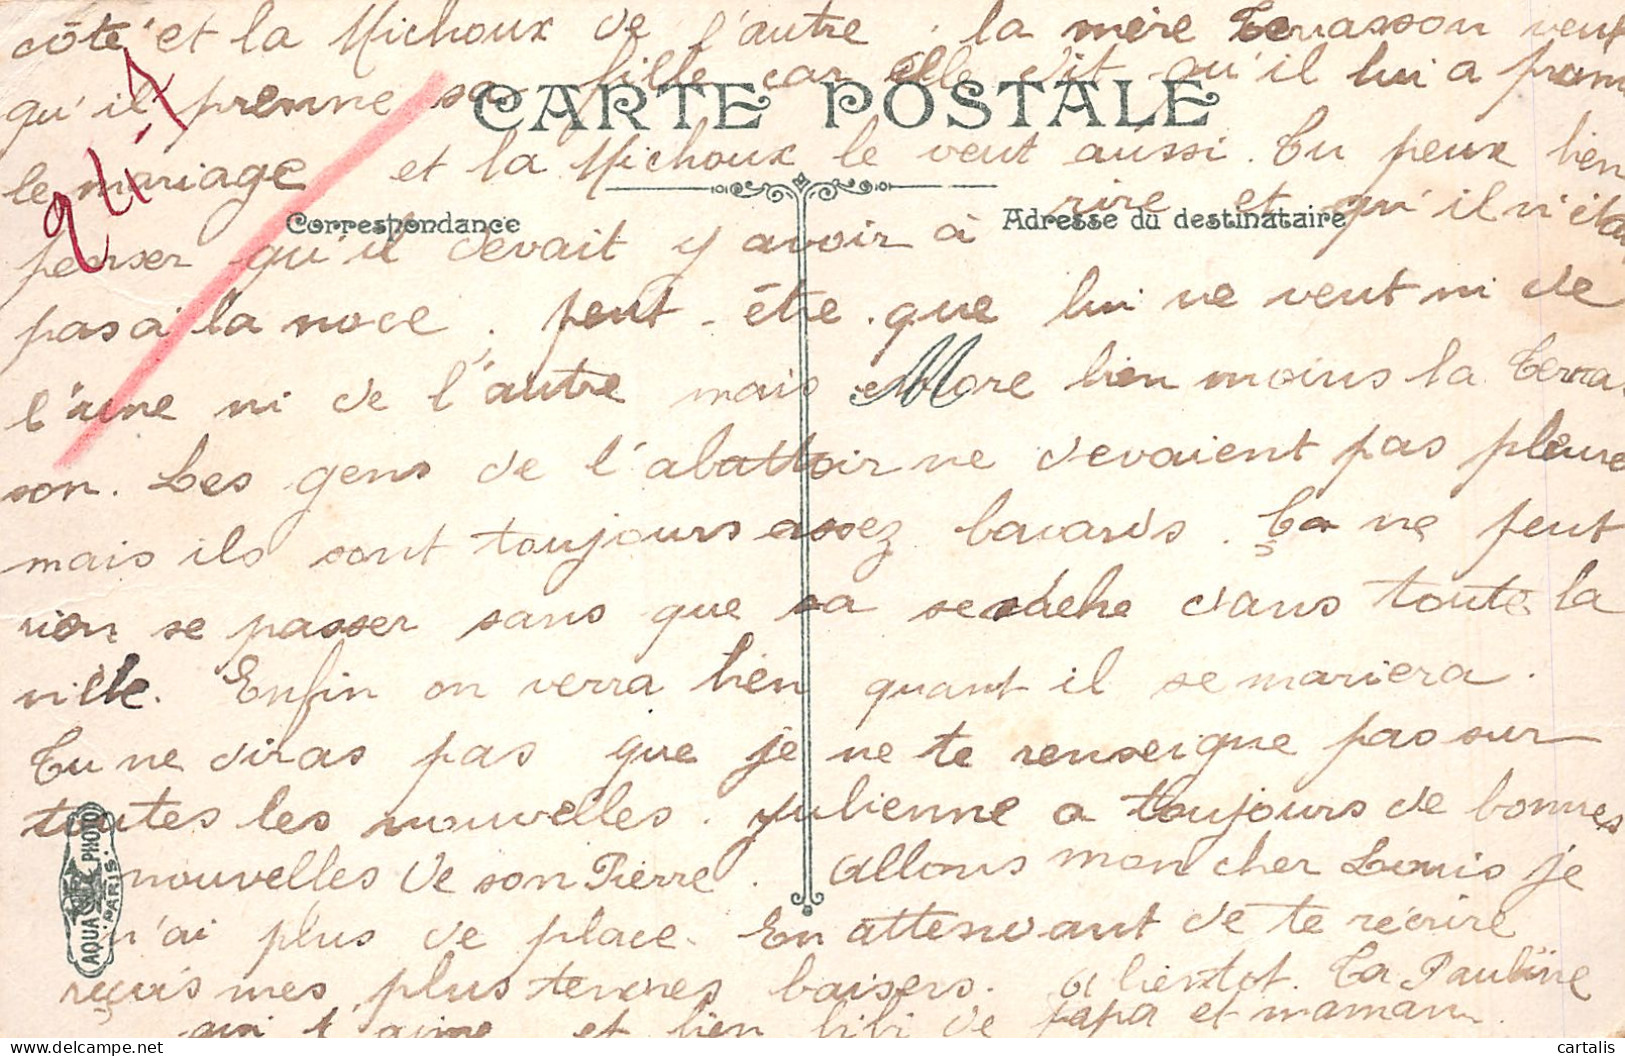 côté et la Michoux de l'autre, la mère Terrasson veut
qu'il prenne sa fille car elle dit qu'il lui a promi
CARTE POSTALE
le mariage et la Michoux le veut aussi. Tu peux bien
Correspondance
Adresse du destinataire
penser qu'il devait y avoir à rire et qu'il n'étai
pas à la noce, peut-être que lui ne veut ni de
l'une ni de l'autre mais encore bien moins la Terra
son. Les gens de l'abattoir ne devaient pas pleure
mais ils sont toujours assez bavards. Ça ne peut
rien se passer sans que sa se sache dans toute la
ville. Enfin on verra bien quant il se mariera.
Tu ne diras pas que je ne te renseigne pas sur
toutes les nouvelles. Julienne a toujours de bonnes
nouvelles de son Pierre. Allons mon cher Louis je
n'ai plus de place. En attendant de te réécrire
reçois mes plus tendres baisers. A bientot. Ta Pauline
qui t'aime et bien bibi de papa et maman.
AQUA PHOTO
PARIS
cartalis